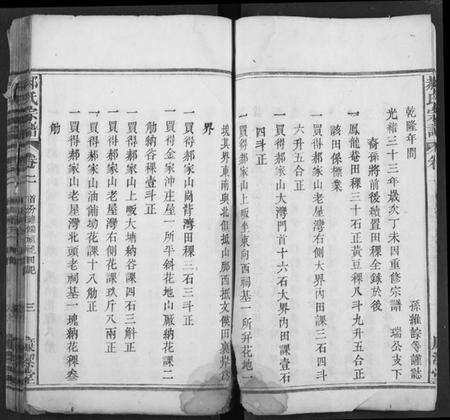 乾隆年間 孫維
光緒三十三年歲次丁未因重修宗譜 瑞公支下
裔孫將前後續置田稞全錄於後
一鳳龍菴田稞三十石正黃豆稞八斗九升五合正
該田係標業
一買得郝家山老屋灣右側大界內田課三石四斗
六升五合正
一買得郝家山大灣門首十六石大界內田課壹石
四斗正
一買得郝家山上畈坐東向西祠基一所屏花地一
界
一買得郝家山崗背灣田課三石三斗正
一買得郝家山上畈大塘納谷課四石三斛正
一買得金家沖庄屋一所平斜花地山厰納花課二
觔納谷稞壹斗正
一買得郝家山老屋灣右側花課玖斤八兩正
一買得郝家山油舖坳花課十八觔正
一買得郝家山老屋灣北頭老祠基一塊納花稞叁
觔
郝氏宗譜 卷一 三